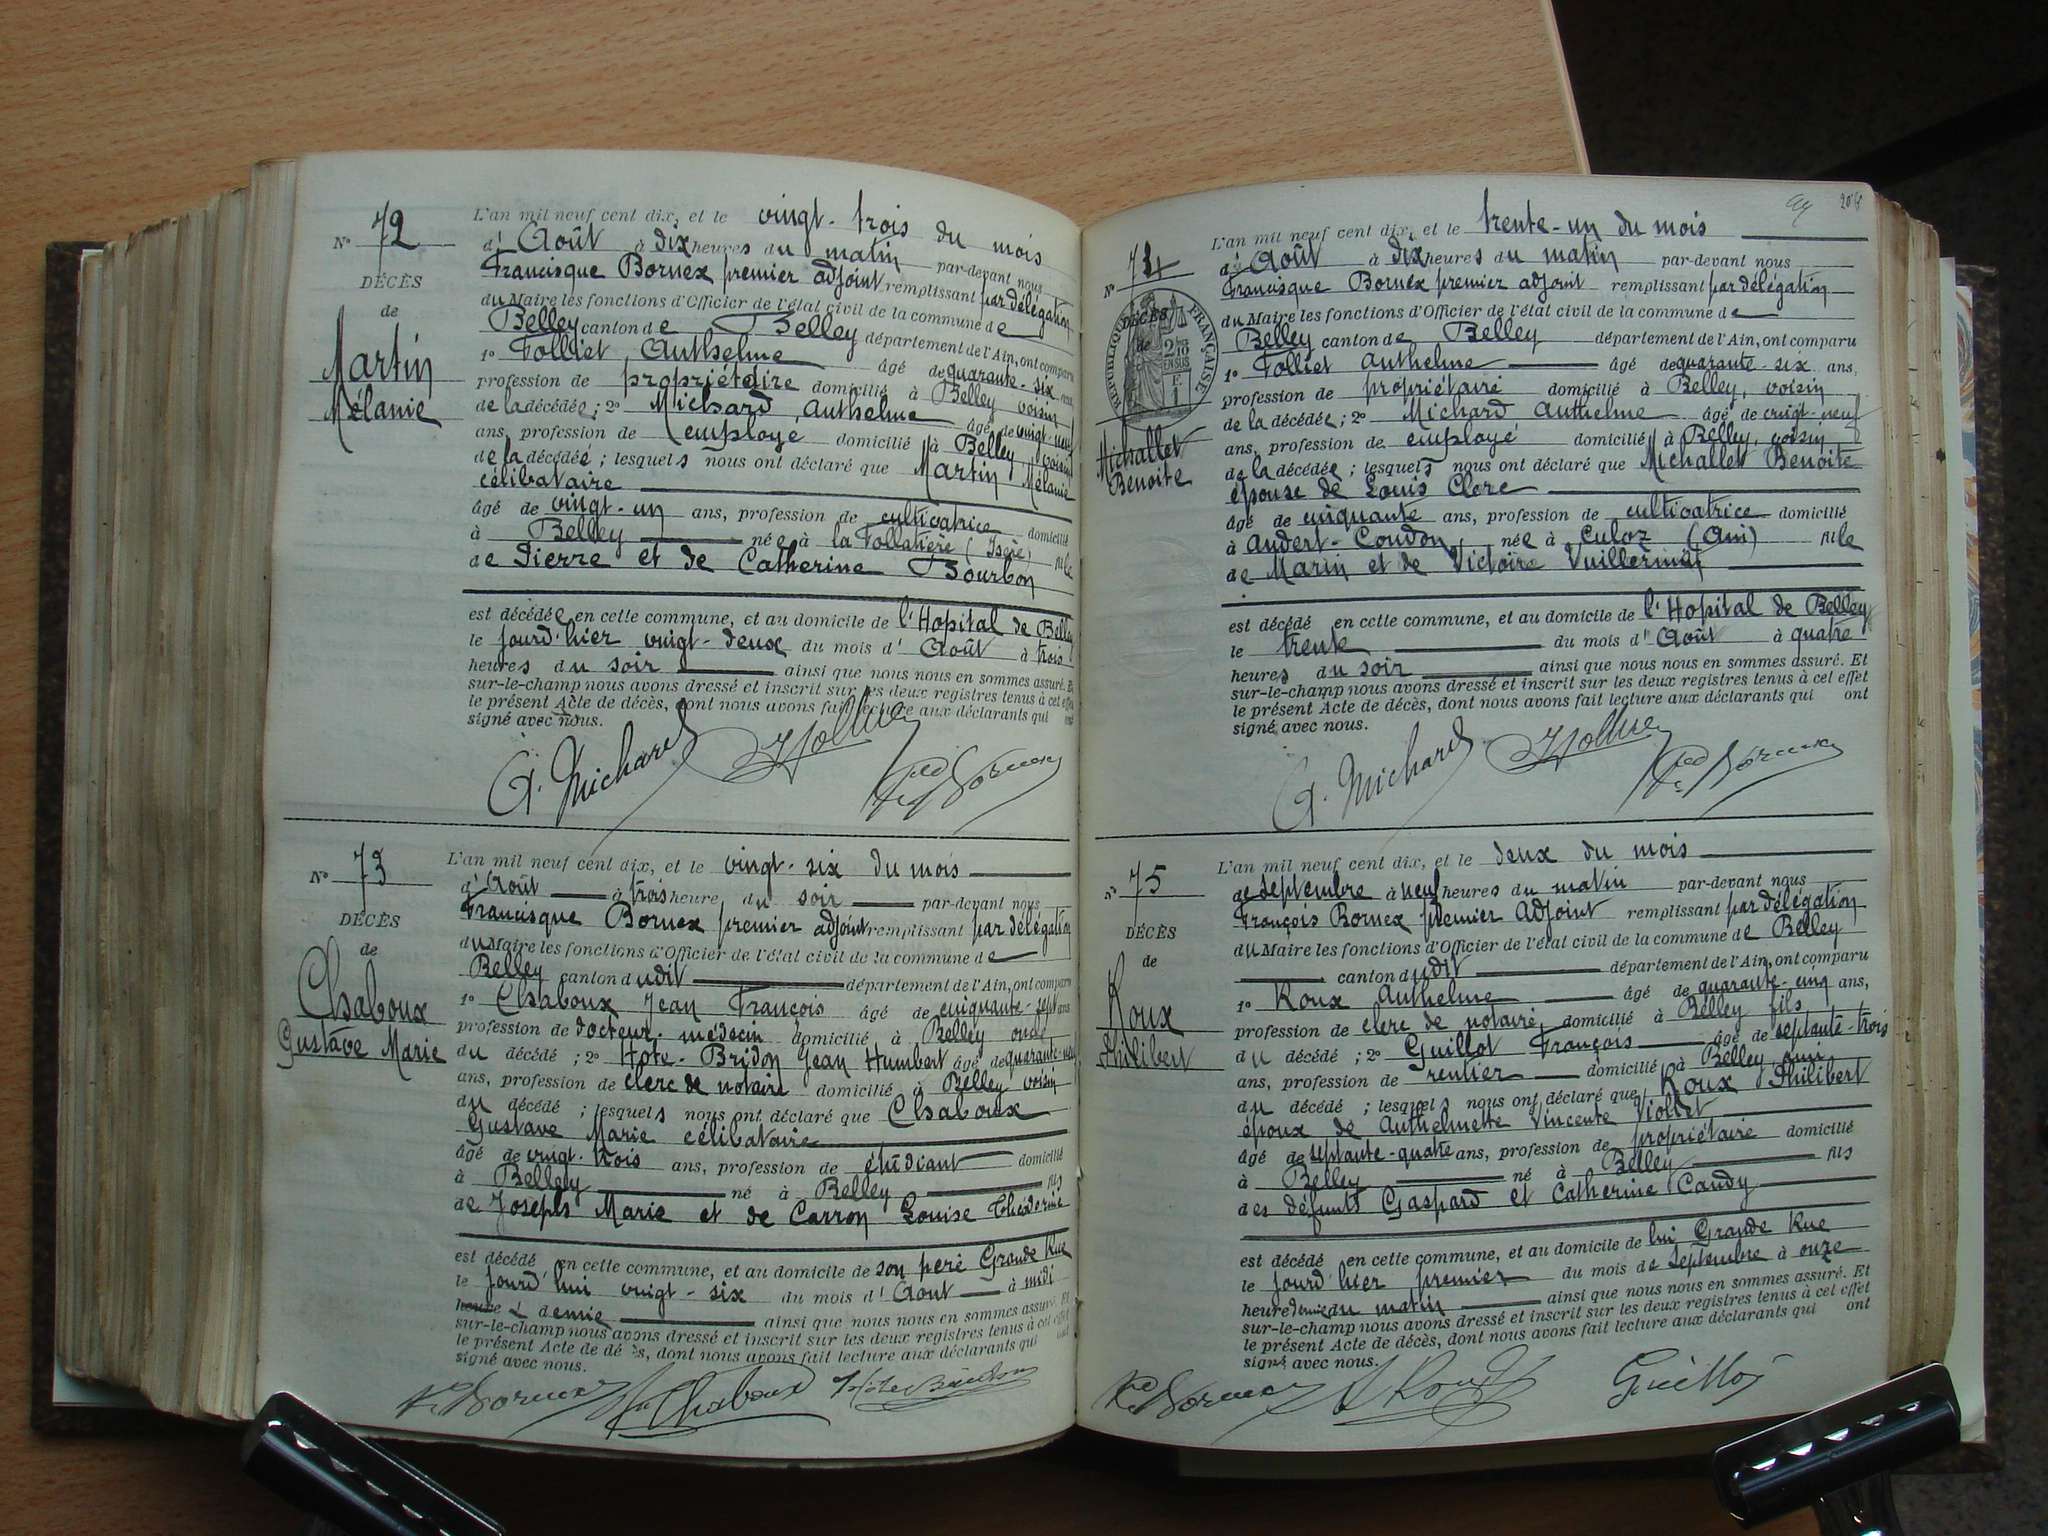 N° 72
DÉCÈS
de
Martin
Mélanie
L'an mil neuf cent dix, et le vingt-trois du mois
d'Août à dix heures du matin par-devant nous
Francisque Bornex premier adjoint remplissant par délégation
du Maire les fonctions d'Officier de l'état civil de la commune de
Belley canton de Belley département de l'Ain, ont comparu
1° Folliet Anthelme âgé de quarante-six ans,
profession de propriétaire domicilié à Belley voisin
de la décédée ; 2° Michard Anthelme âgé de vingt-neuf
ans, profession de employé domicilié à Belley voisin
de la décédée ; lesquels nous ont déclaré que Martin Mélanie
célibataire
âgé de vingt-un ans, profession de cultivatrice domicilié
à Belley née à la Follatière (Isère) fille
de Pierre et de Catherine Bourbon
est décédée en cette commune, et au domicile de l'Hopital de Belley
le jourd'hier vingt-deux du mois d'Août à trois
heures du soir ainsi que nous nous en sommes assuré. Et
sur-le-champ nous avons dressé et inscrit sur les deux registres tenus à cet effet
le présent Acte de décès, dont nous avons fait lecture aux déclarants qui ont
signé avec nous.
A. Michard Folliet Bornex
N° 73
DÉCÈS
de
Chaboux
Gustave Marie
L'an mil neuf cent dix, et le vingt-six du mois
d'Août à trois heures du soir par-devant nous
Francisque Bornex premier adjoint remplissant par délégation
du Maire les fonctions d'Officier de l'état civil de la commune de
Belley canton dudit département de l'Ain, ont comparu
1° Chaboux Jean François âgé de cinquante-sept ans
profession de docteur-médecin domicilié à Belley oncle
du décédé ; 2° Hote-Bridon Jean Humbert âgé de quarante-neuf
ans, profession de clerc de notaire domicilié à Belley voisin
du décédé ; lesquels nous ont déclaré que Chaboux
Gustave Marie célibataire
âgé de vingt-trois ans, profession de étudiant domicilié
à Belley né à Belley fils
de Joseph Marie et de Carron Louise Théodorine
est décédé en cette commune, et au domicile de son père Grande Rue
le jourd'hui vingt-six du mois d'Aout à midi
heure & demie ainsi que nous nous en sommes assuré. Et
sur-le-champ nous avons dressé et inscrit sur les deux registres tenus à cet effet
le présent Acte de décès, dont nous avons fait lecture aux déclarants qui ont
signé avec nous.
Bornex Chaboux Hote Bridon
N° 74
DÉCÈS
de
RÉPUBLIQUE FRANÇAISE
2/10 EN SUS
F. 1
Michallet
Benoite
L'an mil neuf cent dix, et le trente-un du mois
d'Août à dix heures du matin par-devant nous
Francisque Bornex premier adjoint remplissant par délégation
du Maire les fonctions d'Officier de l'état civil de la commune de
Belley canton de Belley département de l'Ain, ont comparu
1° Folliet Anthelme âgé de quarante-six ans,
profession de propriétaire domicilié à Belley, voisin
de la décédée ; 2° Michard Anthelme âgé de vingt-neuf
ans, profession de employé domicilié à Belley, voisin
de la décédée ; lesquels nous ont déclaré que Michallet Benoite
épouse de Louis Clerc
âgé de cinquante ans, profession de cultivatrice domicilié
à Andert-Condon, née à Culoz (Ain) fille
de Marin et de Victoire Vuillerminet
est décédé en cette commune, et au domicile de l'Hopital de Belley
le trente du mois d'Août à quatre
heures du soir ainsi que nous nous en sommes assuré. Et
sur-le-champ nous avons dressé et inscrit sur les deux registres tenus à cet effet
le présent Acte de décès, dont nous avons fait lecture aux déclarants qui ont
signé avec nous.
A. Michard Folliet Bornex
N° 75
DÉCÈS
de
Roux
Philibert
L'an mil neuf cent dix, et le deux du mois
de Septembre à neuf heures du matin par-devant nous
François Bornex premier Adjoint remplissant par délégation
du Maire les fonctions d'Officier de l'état civil de la commune de Belley
canton dudit département de l'Ain, ont comparu
1° Roux Anthelme âgé de quarante-cinq ans,
profession de clerc de notaire domicilié à Belley fils
du décédé ; 2° Guillot François âgé de septante-trois
ans, profession de rentier domicilié à Belley, ami
du décédé ; lesquels nous ont déclaré que Roux Philibert
époux de Anthelmette Vincente Viollet
âgé de septante-quatre ans, profession de propriétaire domicilié
à Belley né à Belley fils
des défunts Gaspard et Catherine Caudy
est décédé en cette commune, et au domicile de lui Grande Rue
le jourd'hier premier du mois de Septembre à onze
heure demie du matin ainsi que nous nous en sommes assuré. Et
sur-le-champ nous avons dressé et inscrit sur les deux registres tenus à cet effet
le présent Acte de décès, dont nous avons fait lecture aux déclarants qui ont
signé avec nous.
Bornex A Roux Guillot